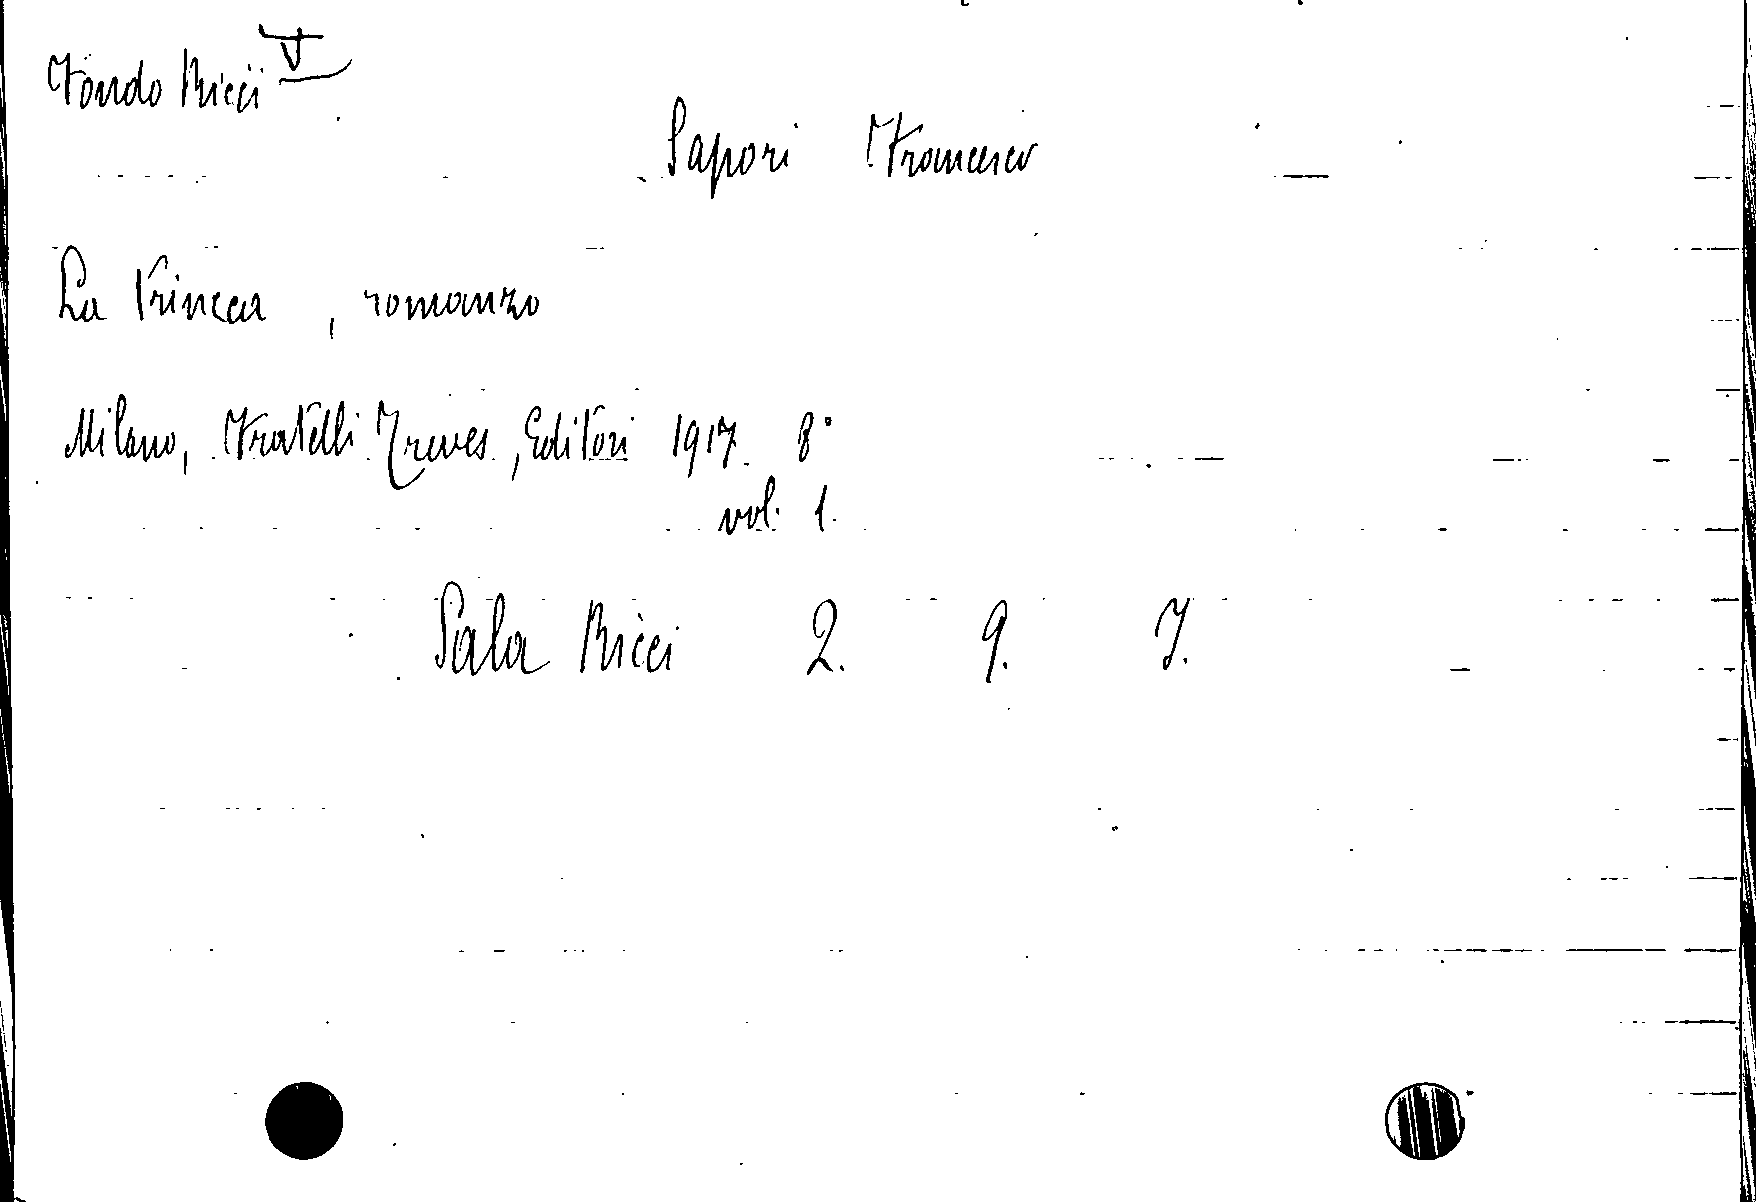 Fondo Ricci V
Sapori Francesco
La trincea, romanzo
Milano, Fratelli Treves, Editori 1917 8°
vol. 1.
Sala Ricci 2. 9. 7.